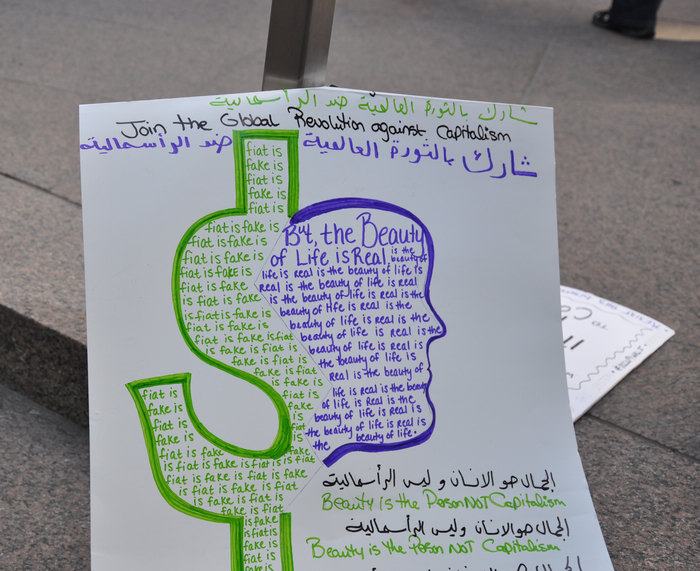 شارك بالثورة العالمية ضد الرأسمالية
Join the Global Revolution against Capitalism
شارك بالثورة العالمية ضد الرأسمالية
fiat is
fake is
fiat is
fake is
fiat is
fiat is fake is
fiat is fake is
fiat is fake is
fiat is fake is
fiat is fake
is fiat is fake
is fiat is fake is
fiat is fake is
fiat is fake is
fake is fiat is
is fake is fiat
fake is fiat is
fake is fiat
is fake is
fiat is
fake
is
fiat is
fake is
fiat is
fake is
fiat is fake
is fiat is fake is fiat is
is fake is fiat is fake is fiat
is fiat is fake is fiat
is fake is fiat is
fake is fiat is
is fake
fiat is
fake is
fiat is
fake is
But, the Beauty
of Life is Real, is the
beauty of
life is real is the beauty of life is
real is the beauty of life is real
is the beauty of life is real is the
beauty of life is real is the
beauty of life is real is the
beauty of life is real is the
beauty of life is real is
the beauty of life is
real is the beauty of
life is real is the beauty
of life is Real is the
beauty of life is real is
the beauty of life is real is
the beauty of life.
الجمال هو الانسان وليس الرأسمالية
Beauty is the Person NOT Capitalism
الجمال هو الانسان وليس الرأسمالية
Beauty is the Person NOT Capitalism